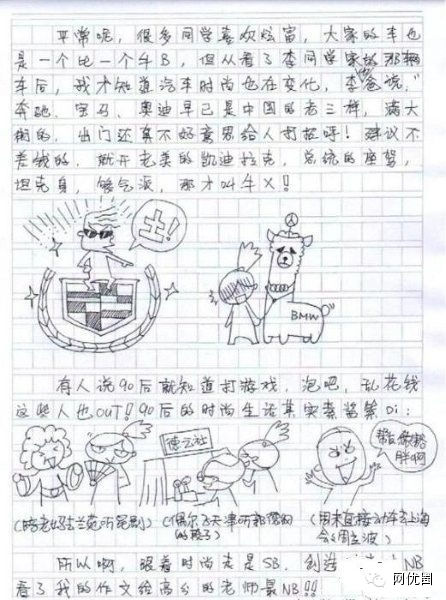 平常呢，很多同学喜欢炫富，大家的车也
是一个比一个牛B，但从看了李同学家的那辆
车后，我才知道汽车时尚也在变化，李爸说，
奔驰、宝马、奥迪早已是中国的老三样，满大
街的，出门还真不好意思给人打招呼！建议不
差钱的，就开老美的凯迪拉克，总统的座驾，
坦克身，够气派，那才叫牛X！！
土！
BMW
有人说90后就知道打游戏，泡吧，乱花钱
这些人也OUT！90后的时尚生活其实
德云社
帮我
胖啊
（陪老妈去兰苑听昆剧）
（偶尔飞天津听郭德纲
的段子）
（周末直接动车去上海
会周立波）
所以啊，跟着时尚走是SB，创造
NB
看了我的作文给高分的老师最NB！！
网优圈